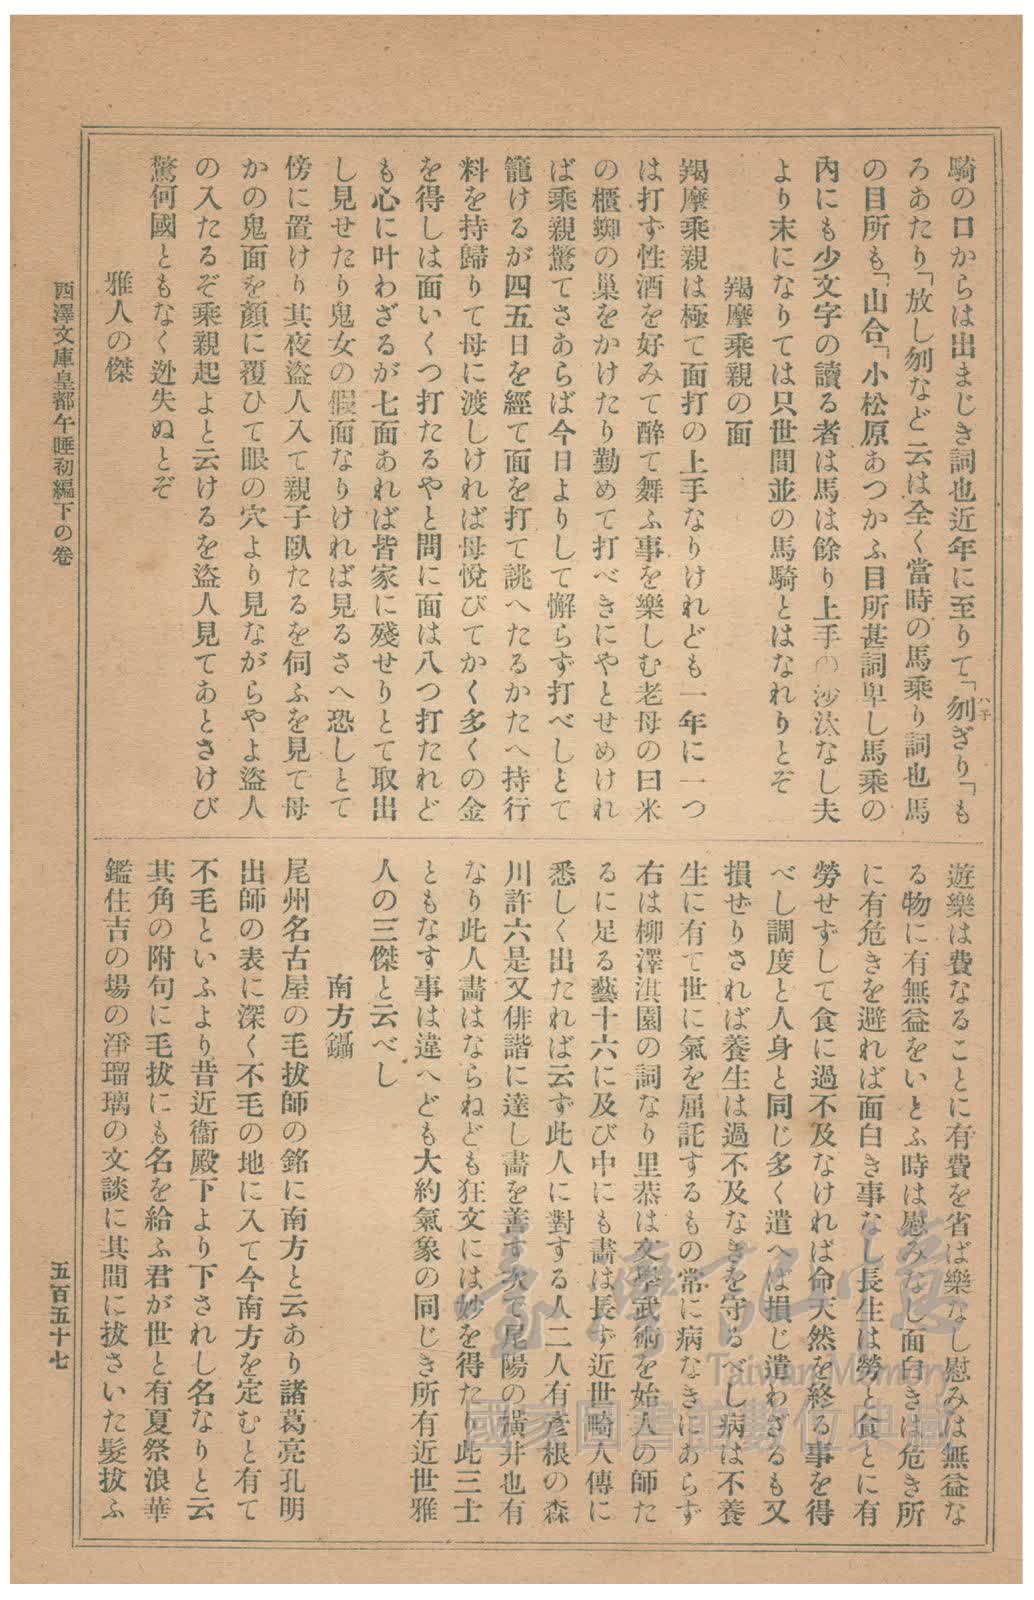 騎の口からは出まじき詞也近年に至りて「刎ぎり「も
ハ子
ろあたり「放し刎など云は全く當時の馬乘り詞也馬
の目所も「山合「小松原あつかふ目所甚詞卑し馬乘の
內にも少文字の讀る者は馬は餘り上手の沙汰なし夫
より末になりては只世間並の馬騎とはなれりとぞ
羯摩乘親の面
羯摩乘親は極て面打の上手なりけれども一年に一つ
は打ず性酒を好みて醉て舞ふ事を樂しむ老母の曰米
の櫃蜘の巢をかけたり勤めて打べきにやとせめけれ
ば乘親驚てさあらば今日よりして懈らず打べしとて
籠けるが四五日を經て面を打て誂へたるかたへ持行
料を持歸りて母に渡しければ母悅びてかく多くの金
を得しは面いくつ打たるやと問に面は八つ打たれど
も心に叶わざるが七面あれば皆家に殘せりとて取出
し見せたり鬼女の假面なりければ見るさへ恐しとて
傍に置けり其夜盜人入て親子臥たるを伺ふを見て母
かの鬼面を顏に覆ひて眼の穴より見ながらやよ盜人
の入たるぞ乘親起よと云けるを盜人見てあとさけび
驚何國ともなく迯失ぬとぞ
雅人の傑
遊樂は費なることに有費を省ば樂なし慰みは無益な
る物に有無益をいとふ時は慰みなし面白きは危き所
に有危きを避れば面白き事なし長生は勞と食とに有
勞せずして食に過不及なければ命天然を終る事を得
べし調度と人身と同じ多く遣へば損じ遣わざるも又
損ぜりされば養生は過不及なきを守るべし病は不養
生に有て世に氣を屈託するもの常に病なきにあらず
右は柳澤淇園の詞なり里恭は文學武術を始人の師た
るに足る藝十六に及び中にも畵は長ず近世畸人傳に
悉しく出たれば云ず此人に對する人二人有彥根の森
川許六是又俳諧に達し畵を善す次て尾陽の橫井也有
なり此人畵はならねども狂文には妙を得たり此三士
ともなす事は違へども大約氣象の同じき所有近世雅
人の三傑と云べし
南方鑷
尾州名古屋の毛拔師の銘に南方と云あり諸葛亮孔明
出師の表に深く不毛の地に入て今南方を定むと有て
不毛といふより昔近衞殿下より下されし名なりと云
其角の附句に毛拔にも名を給ふ君が世と有夏祭浪華
鑑住吉の場の淨瑠璃の文談に其間に拔さいた髮拔ふ
西澤文庫皇都午睡初編下の卷
五百五十七
臺灣記憶
Taiwan Memory
國家圖書館數位典藏